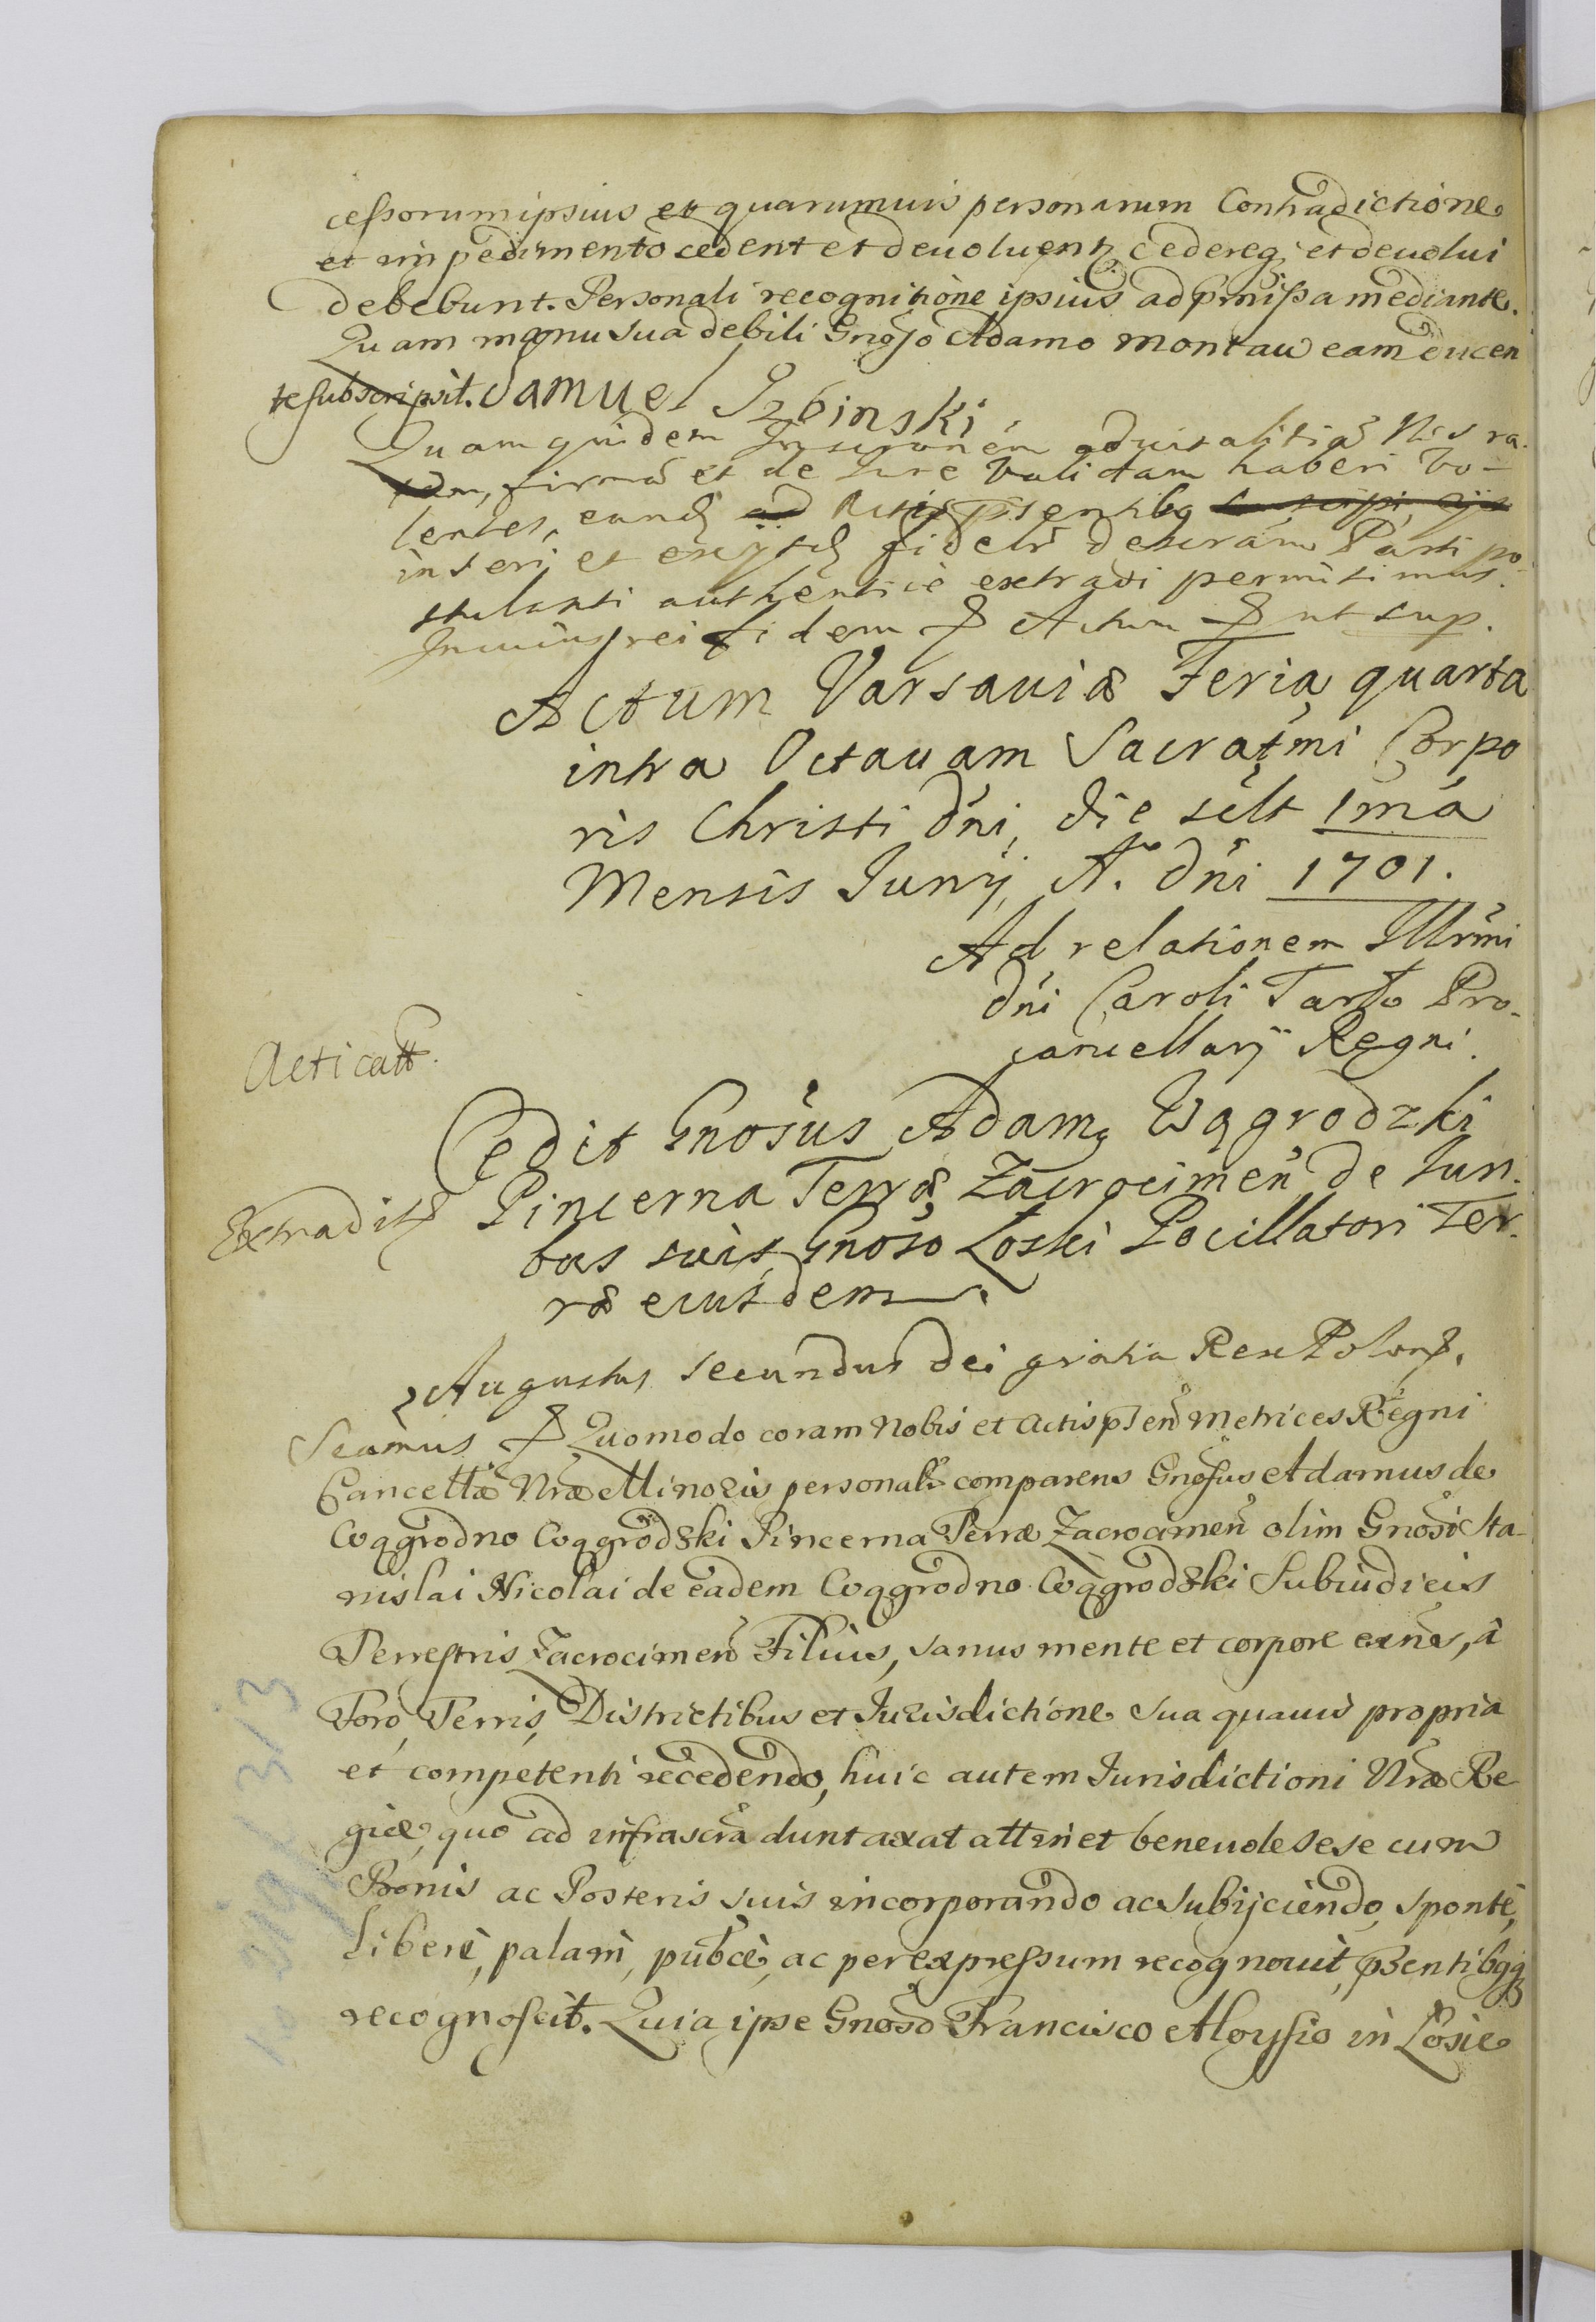 cessorum ipsius et quarumuis personarum Contradictione
et impedimento cedent et deuoluent cedereq et deuolui
debebunt. Personali recognitione ipsius ad pmissa mediante.
Quam manu sua debili Gnoso Adamo Montau eam ducen
te subscripsit. Samuel Izbinski
Quam quidem aduitalitia
firma et de Iure validam haberi vo-
lentes, Actis psentibq
inseri et fideli Parti po-
stulanti authentice extradi permitimus.
In cuius rei fidem Actum ut sup.
Actum Varsauiæ Feria quarta
intra Octauam Sacratmi Corpo
ris Christi dni, die sclt 1ma
Mensis Iunij, Ao. dni 1701.
Ad relationem Illrmi
dni Caroli Tarło Pro-
cancellarij Regni.
Acticatt.
Cedit Gnosus Adamq Wągrodzki
Extradit Pincerna Terræ Zacrocimen de Iuri-
bus suis Gnoso Łoski Pocillatori Ter-
ræ eiusdem.
Augustus secundus dei gratia Rex Polon.
Seamus Quomodo coram Nobis et Actis psen Metrices Regni
Cancellæ Nræ Minoris personalr comparens Gnosus Adamus de
Wągrodno Wągrodzki Pincerna Terræ Zacrocimen olim Gnosi Sta-
nislai Nicolai de eadem Wągrodno Wągrodzki Subiudicis
Terrestris Zacrocimen Filius, sanus mente et corpore exns, a
Foro, Terris, Districtibus et Iurisdictione sua quauis propria
et competenti recedendo, huic autem Iurisdictioni Nræ Re-
giæ, quo ad infrascra duntaxat attinet beneuole sese cum
Bonis ac Posteris suis incorporando ac subijciendo, sponte,
libere, palam, pubce, ac per expressum recognouit, psentibqq
recognoscit. Quia ipse Gnoso Francisco Aloysio in Łosie